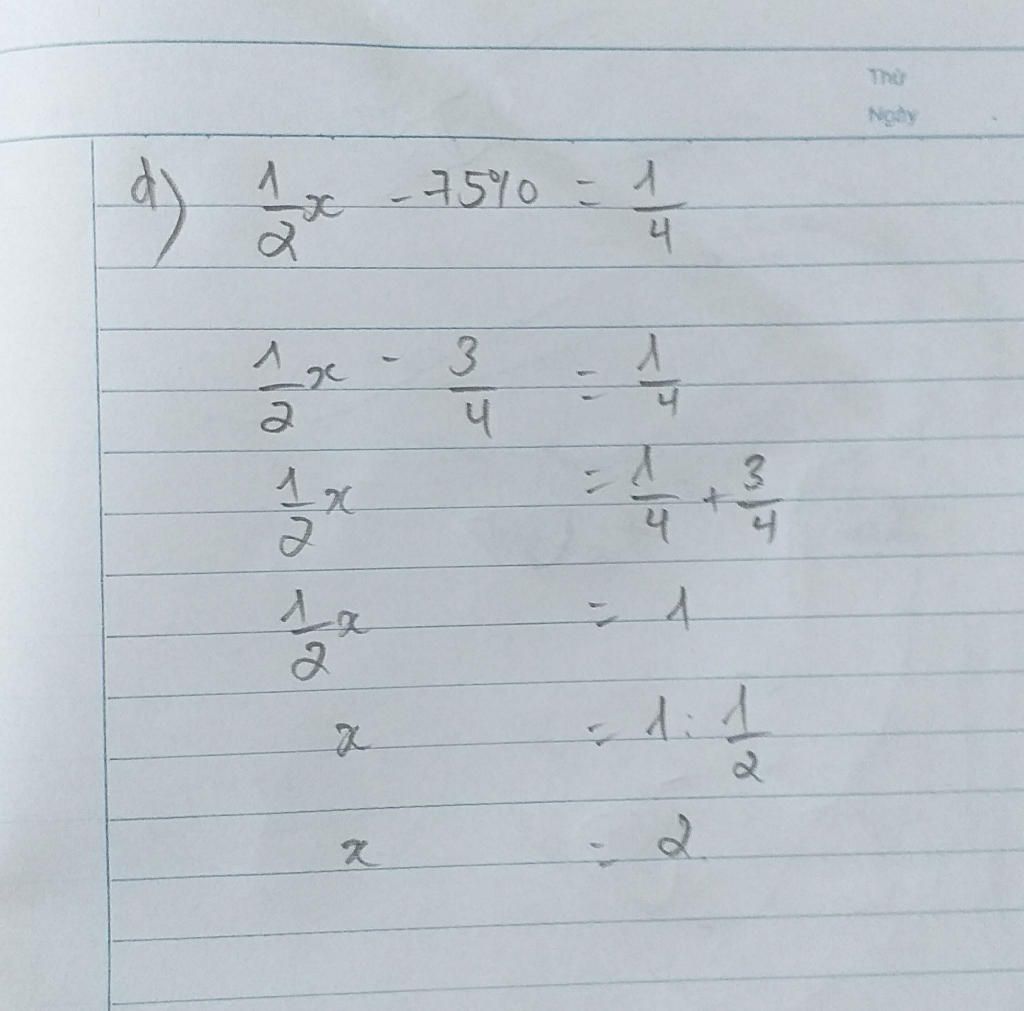 Thứ
Ngày
d) 1/2 x - 75% = 1/4
1/2 x - 3/4 = 1/4
1/2 x = 1/4 + 3/4
1/2 x = 1
x = 1 : 1/2
x = 2